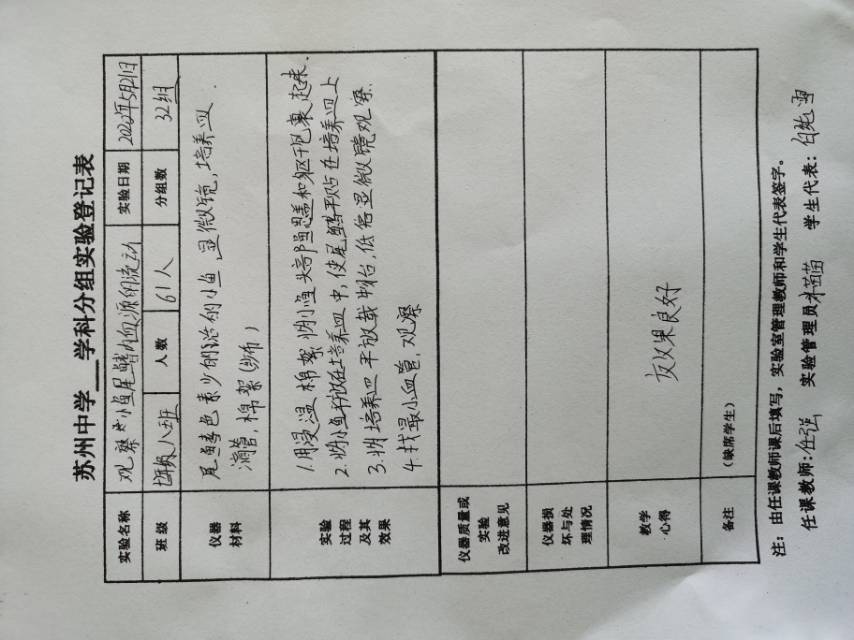 苏州中学__学科分组实验登记表
实验名称 观察小鱼尾鳍内血液的流动 实验日期 5月21日
班级 八班 人数 61人 分组数 32组
仪器材料 尾鳍色素少的活的小鱼,显微镜,培养皿.
滴管,棉絮(纱布)
实验过程及其效果 1.用浸湿棉絮将小鱼头部鳃盖和躯干包裹起来.
2.将小鱼平放在培养皿中,使尾鳍平贴在培养皿上
3.将培养皿平放载物台,低倍显微镜观察.
4.找最小血管,观察
仪器质量或实验改进意见
仪器损坏与处理情况
教学心得 效果良好
备注 (缺席学生)
注: 由任课教师课后填写,实验室管理教师和学生代表签字。
任课教师:任强 实验管理员 学生代表: